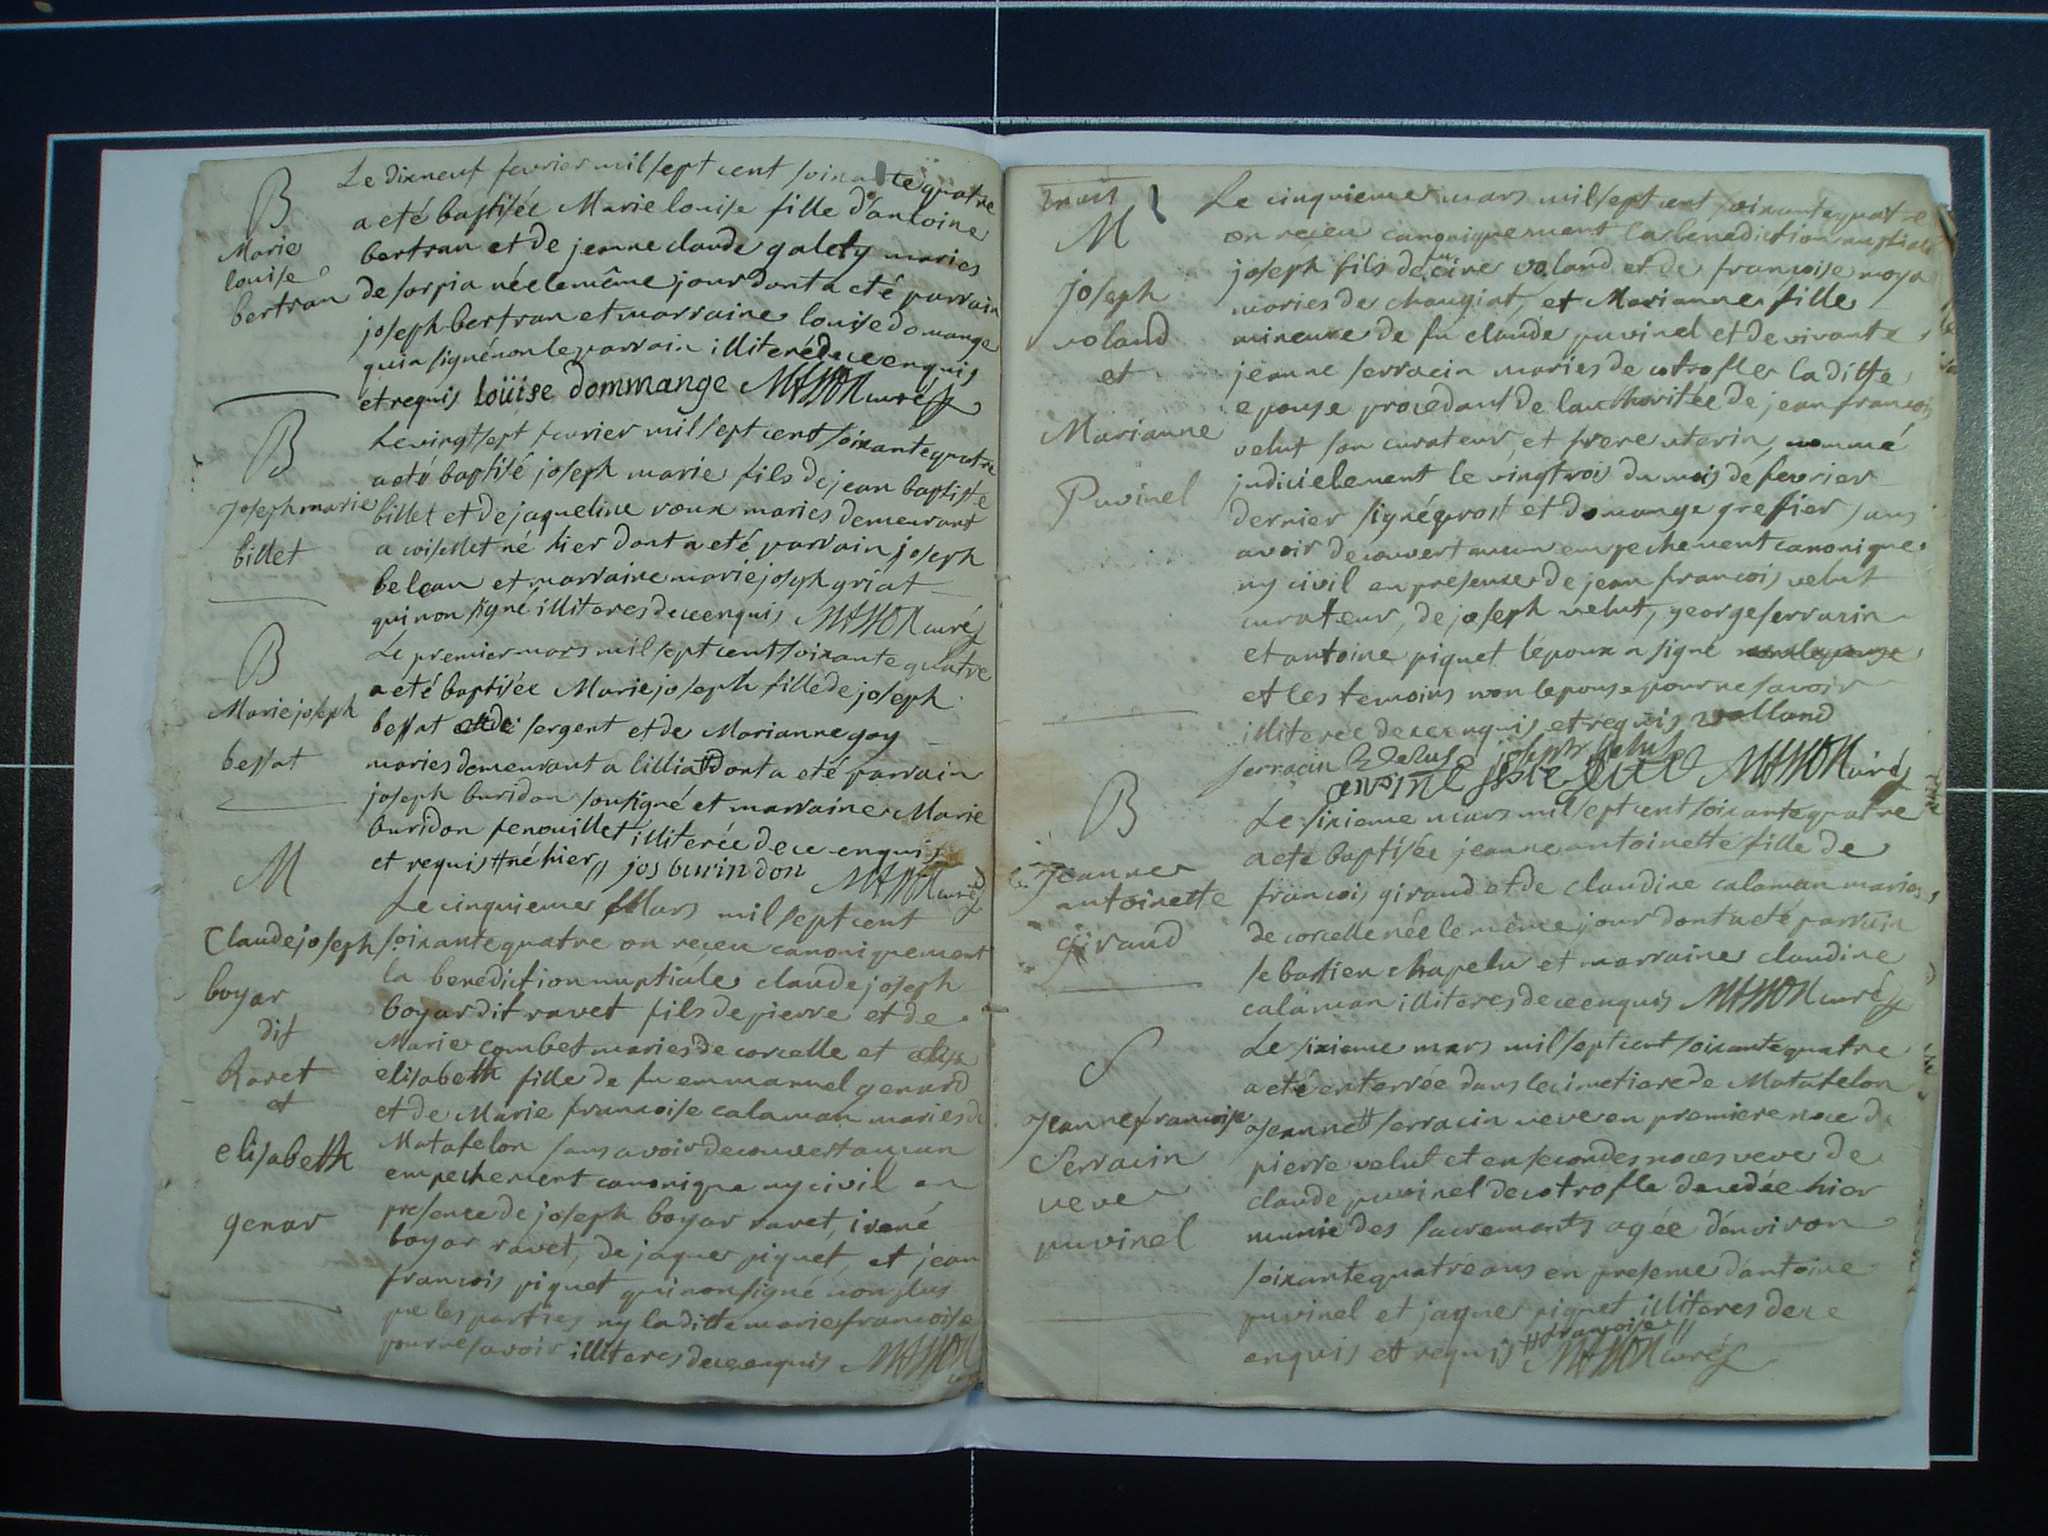 B
Marie
louise
bertran
Le dixneuf fevrier mil sept cent soixante quatre
a eté baptisée Marie louise fille d'antoine
bertran et de jeanne claude galety maries
de sorpia née le même jour dont a eté parrain
joseph bertran et marraine louise domange
qui a signé non le parrain illiteré de ce enquis
et requis loüise dommange MASSON curé
B
joseph marie
billet
Le vingt sept fevrier mil sept cent soixante quatre
a eté baptisé joseph marie fils de jean baptiste
billet et de jaqueline roux maries demeurant
a coiselet né hier dont a eté parrain joseph
belean et marraine marie joseph griat
qui non signé illiteres de ce enquis MASSON curé
B
Marie joseph
bessat
Le premier mars mil sept cent soixante quatre
a eté baptisée Marie joseph fille de joseph
bessat sergent et de Marianne gay
maries demeurant a lilliat # dont a eté parrain
joseph buridon sousigné et marraine Marie
buridon fenouillet illiterée de ce enquis
et requis # né hier // jos burindon MASSON curé
M
Claude joseph
boyar
dit
Ravet
et
elisabeth
genar
Le cinquieme Mars mil sept cent
soixante quatre on reçeu canoniquement
la benediction nuptiale claude joseph
boyar dit ravet fils de pierre et de
Marie combet maries de corcelle et
elisabeth fille de fu emmanuel genard
et de Marie francoise calaman maries de
Matafelon sans avoir decouvert aucun
empechement canonique ny civil en
presence de joseph boyar ravet, irené
boyar ravet, de jaques piquet, et jean
francois piquet qui non signé non plus
que les parties ny laditte marie francoise
pour ne savoir illiteres de ce enquis MASSON
M
joseph
voland
et
Marianne
Puvinel
Le cinquieme mars mil sept cent soixante quatre
on reçeu canoniquement la benediction nuptiale
joseph fils de voland et de francoise moya
maries de changiat, et Marianne fille
mineure de fu claude puvinel et de vivante
jeanne serracin maries de cotrofle la ditte
epouse procedant de lauthoritée de jean francois
velut son curateur, et frere uterin, nommé
judicielement le vingt trois du mois de fevrier
dernier signé grost et domange grefier sans
avoir decouvert aucun empechement canonique
ny civil en presence de jean francois velut
curateur, de joseph velut, george serracin
et antoine piquet l'époux a signé
et les temoins non lepouse pour ne savoir
illiterée de ce enquis et requis volland
serracin joseph velut
antoine MASSON curé
B
jeanne
antoinette
giraud
Le sixieme mars mil sept cent soixante quatre
a ete baptisée jeanne antoinette fille de
francois giraud et de claudine calaman maries
de corcelle née le même jour dont a eté parrain
sebastien chapelu et marraine claudine
calaman illiteres de ce enquis MASSON curé
S
jeanne francoise
Serracin
veve
puvinel
Le sixieme mars mil sept cent soixante quatre
a eté enterrée dans le cimetiere de Matafelon
jeanne # serracin veve en premiere noce de
pierre velut et en secondes noces veve de
claude puvinel de cotrofle decedée hier
munie des sacrements agée d'environ
soixante quatre ans en presence d'antoine
puvinel et jaques piquet illiteres de ce
enquis et requis # francoise // MASSON curé